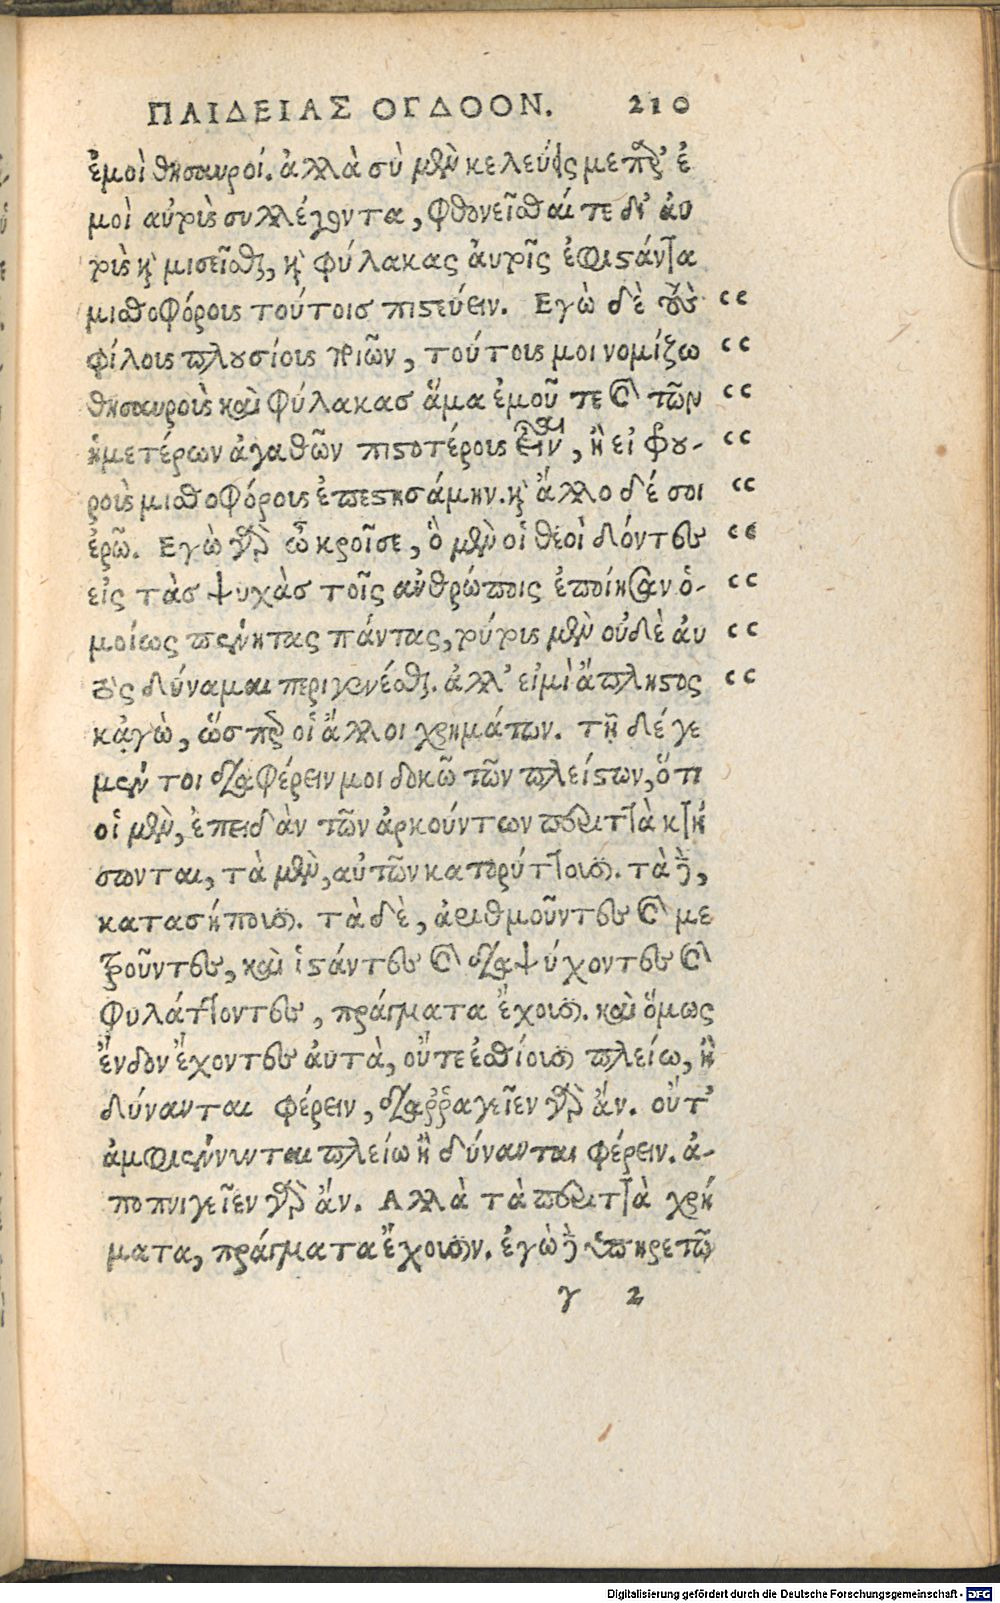 ΠΑΙΔΕΙΑΣ ΟΓΔΟΟΝ. 210
ἐμοὶ θησαυροί. ἀλλὰ σὺ μὲν κελεύεις με παρ’ ἐ
μοὶ αὐτοὺς συλλέγοντα, φθονεῖσθαί τε δι’ αὐ
τοὺς καὶ μισεῖσθαι, καὶ φύλακας αὐτοῖς ἐφιστάντα
μισθοφόρους τούτοις πιστεύειν. Εγὼ δὲ τοὺς “
φίλους πλουσίους ποιῶν, τούτους μοι νομίζω “
θησαυροὺς καὶ φύλακας ἅμα ἐμοῦ τε καὶ τῶν “
ἡμετέρων ἀγαθῶν πιστοτέρους εἶναι, ἢ εἰ φρου- “
ροὺς μισθοφόρους ἐπεστησάμην. καὶ ἄλλο δέ σοι “
ἐρῶ. Εγὼ γὰρ ὦ κροῖσε, ὃ μὲν οἱ θεοὶ δόντες “
εἰς τὰς ψυχὰς τοῖς ἀνθρώποις ἐποίησαν ὁ- “
μοίως πένητας πάντας, τούτου μὲν οὐδὲ αὐ “
τὸς δύναμαι περιγενέσθαι. ἀλλ’ εἰμὶ ἄπληστος “
κᾀγὼ, ὥσπερ οἱ ἄλλοι χρημάτων. τῇ δέ γε
μέν τοι διαφέρειν μοι δοκῶ τῶν πλείστων, ὅτι
οἱ μὲν, ἐπειδὰν τῶν ἀρκούντων περιττὰ κτή
σωνται, τὰ μὲν, αὐτῶν κατορύττουσι. τὰ δὲ,
κατασήπουσι. τὰ δὲ, ἀριθμοῦντες καὶ με
τροῦντες, καὶ ἱστάντες καὶ διαψύχοντες καὶ
φυλάττοντες, πράγματα ἔχουσι. καὶ ὅμως
ἔνδον ἔχοντες αὐτὰ, οὔτε ἐσθίουσι πλείω, ἢ
δύνανται φέρειν, διαῤῥαγεῖεν γὰρ ἄν. οὔτ’
ἀμφιέννυνται πλείω ἢ δύνανται φέρειν. ἀ-
ποπνιγεῖεν γὰρ ἄν. Αλλὰ τὰ περιττὰ χρή
ματα, πράγματα ἔχουσιν. ἐγὼ δὲ ὑπηρετῶ
y 2
Digitalisierung gefördert durch die Deutsche Forschungsgemeinschaft - DFG